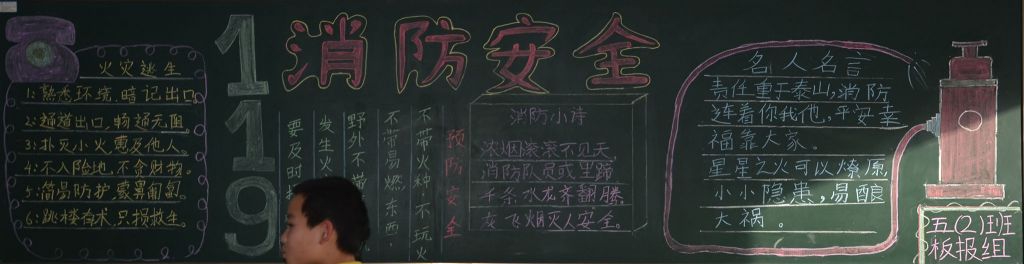 119
消防安全
火灾逃生
1:熟悉环境,暗记出口。
2:通道出口,畅通无阻。
3:扑灭小火,惠及他人。
4:不入险地,不贪财物。
5:简易防护,蒙鼻匍匐。
6:跳楼有术,只损救生。
要及时
发生火
野外不
不带易燃东西,
不带火种不玩火
预防安全
消防小诗
浓烟滚滚不见天,
消防队员成至蹄
千条水龙齐翻腾
灭人安全。
名人名言
责任重于泰山,消防
连着你我他,平安幸
福靠大家。
星星之火可以燎原
小小隐患,易酿
大祸。
五〇班班
板报组